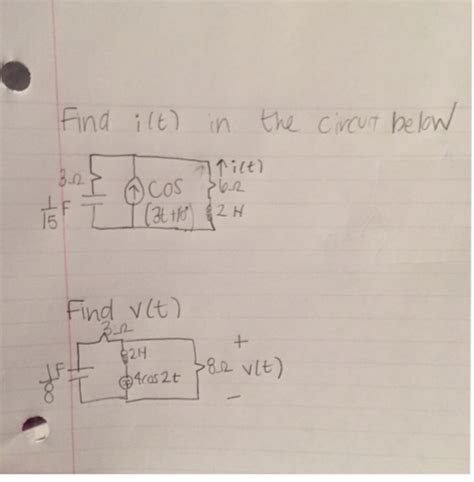 Find i(t) in the circuit below
3Ω
1/15 F
↑ cos
(3t+10°)
↑i(t)
6Ω
2 H
Find v(t)
3Ω
1/8 F
2H
4cos2t
8Ω
+
v(t)
−